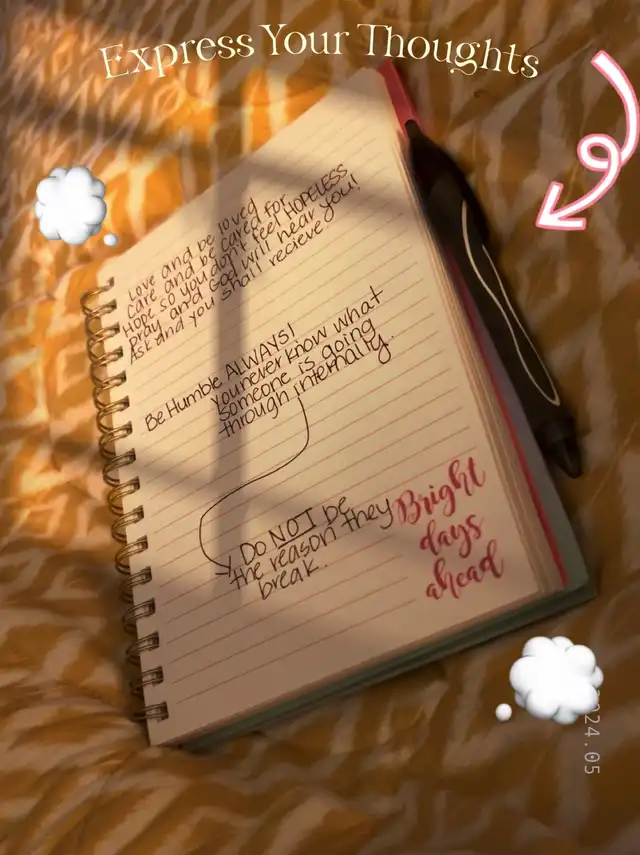 Express Your Thoughts
Love and be loved
care and be cared for
Hope so you don't feel HOPELESS
Pray and God will hear you!
Ask and you shall recieve.
Be Humble ALWAYS!
you never know what
someone is going
through internally.
Do NOT be
the reason they
break.
Bright
days
ahead
024.05